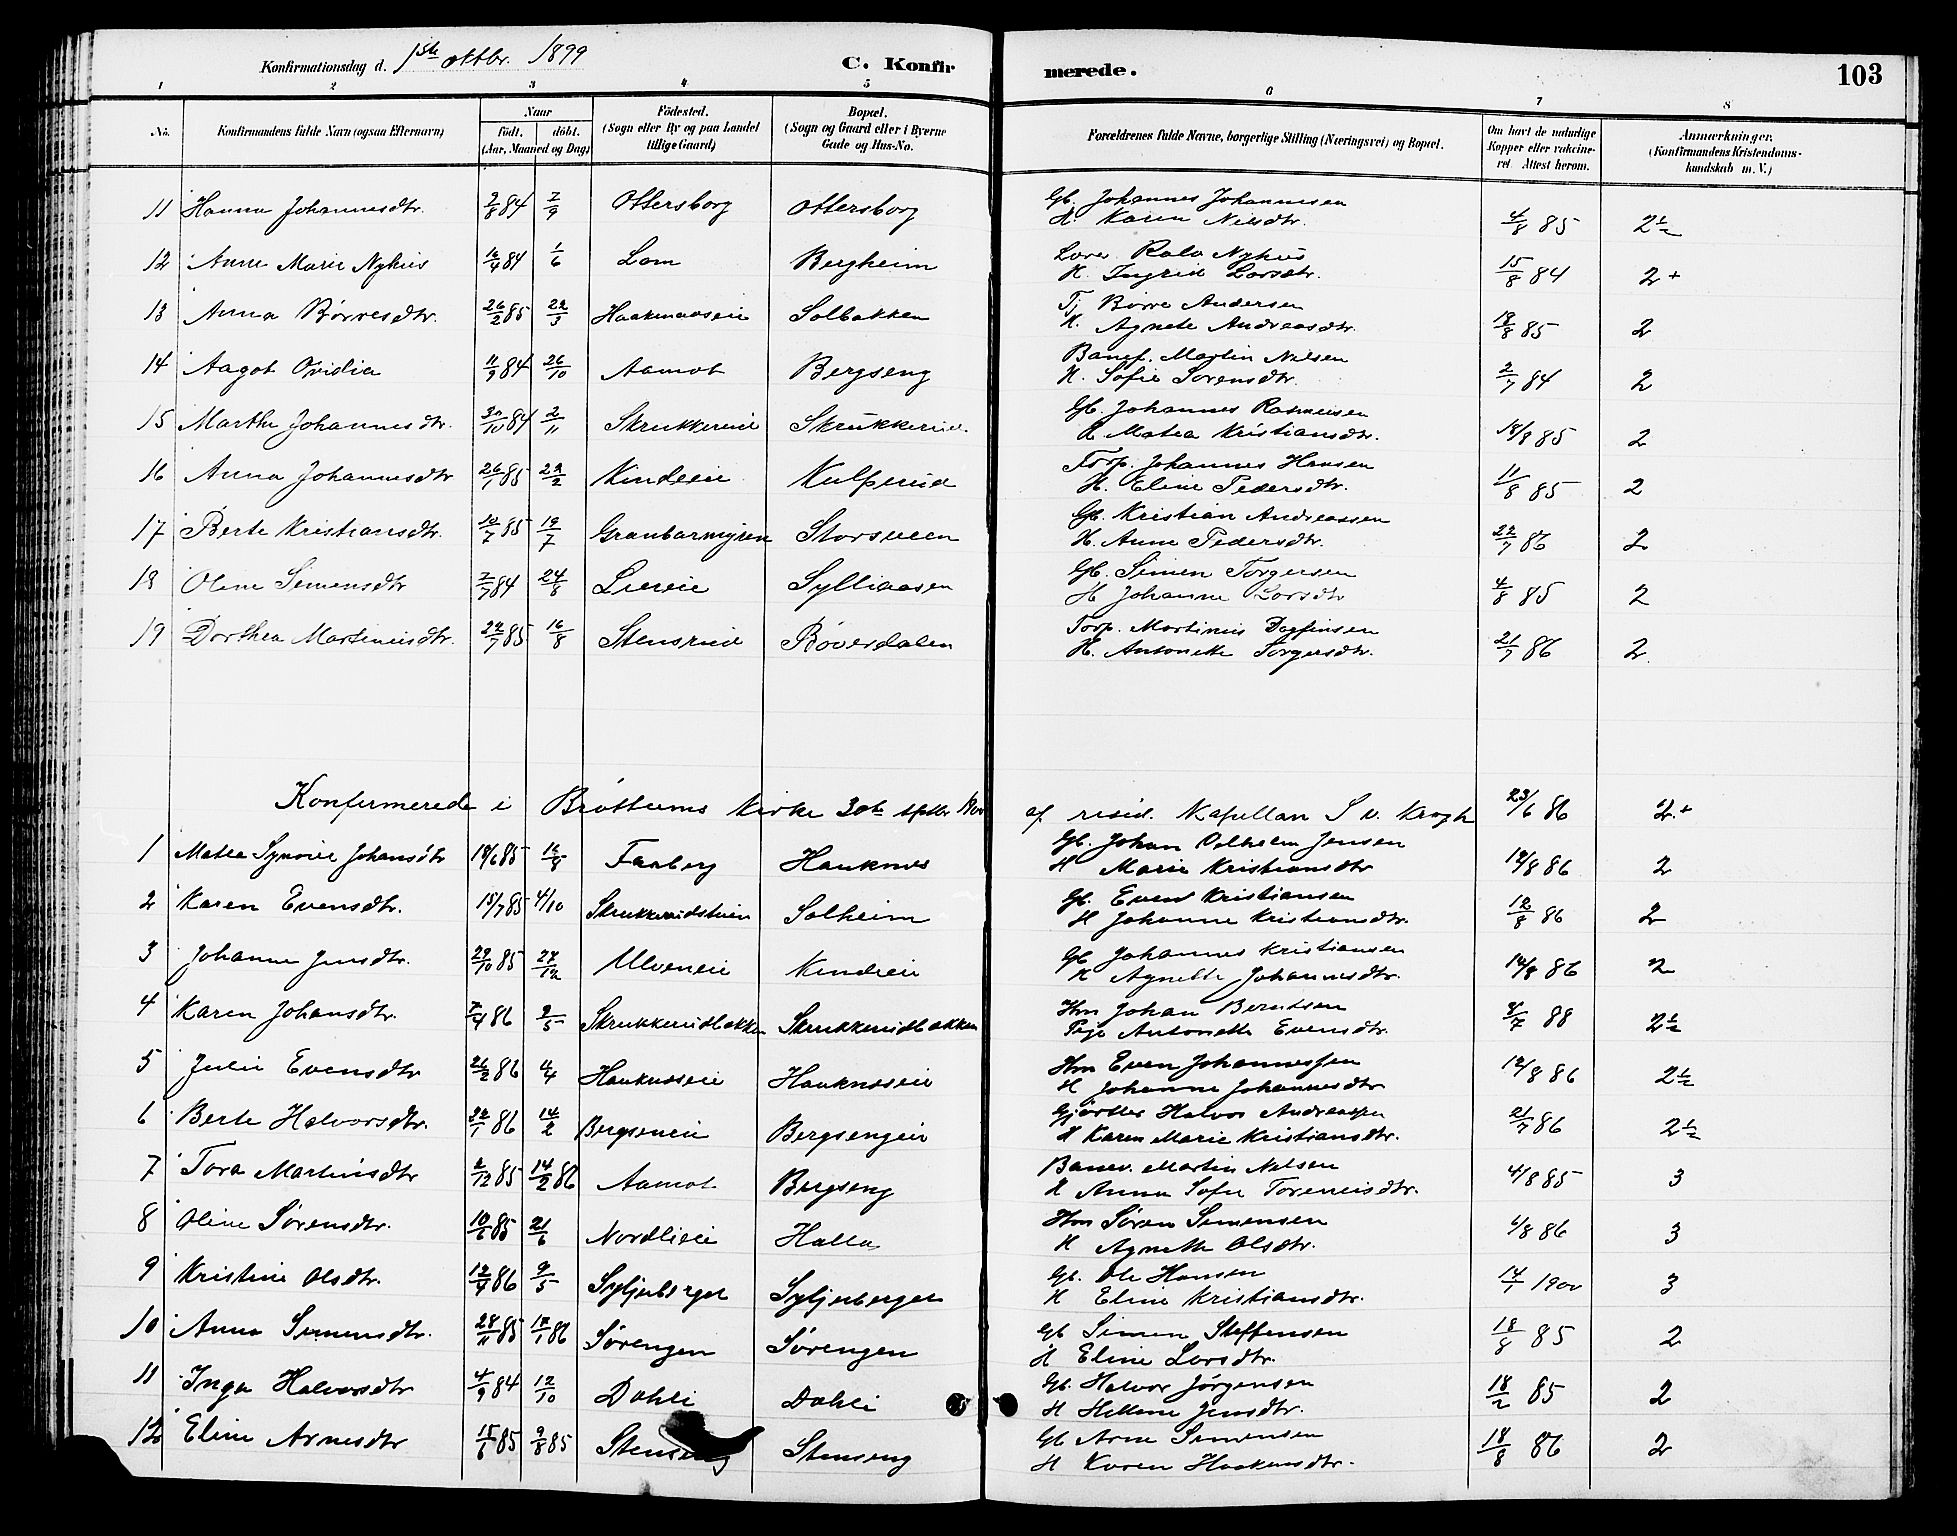 Konfirmationsdag d. 1ste oktbr. 1899 C. Konfir merede. 103
1 2 3 4 5 6 7 8
No. Konfirmandens fulde Navn (ogsaa Efternavn) Naar födt. döbt. (Aar, Maaned og Dag) Födested. (Sogn eller By og paa Landet tillige Gaard) Bopæl. (Sogn og Gaard eller i Byerne Gade og Hus-No. Forældrenes fulde Navne, borgerlige Stilling (Næringsvei) og Bopæl. Om havt de naturlige Kopper eller vakcineret Attest herom. Anmærkninger. (Konfirmandens Kristendomskundskab m. V.)
11 Hanna Johannesdtr. 9/8 84 7/9 Ottersborg Ottersborg Gb. Johannes Johannesen
H. Karen Nilsdtr. 4/8 85 2½
12 Anne Marie Nyhus 1/6 Lom Bergheim Nyhus
H. Ingrid Larsdtr. 15/8 84 2+
13 Anna Børresdtr. 26/2 85 22/3 Solbakken Tj Børre Andersen
H. Agnete Andreasdtr. 18/8 85 2
14 Aagot Ovidia 11/9 84 26/10 Aamot Bergseng Martin Nilsen
H. Sofie Sorensdtr. 2/7 84 2
15 Marthe Johannesdtr. 30/10 84 2/11 Skrukkerud Gb. Johannes Rasmusen
H. Matea Kristiansdtr. 18/8 85 2
16 Anna Johannesdtr 26/1 85 22/2 Kindlien Kulperud Torp. Johannes Hansen
H. Eline Pedersdtr. 11/8 85 2
17 Berte Kristiansdtr. 19/7 Granbarmyren Storsveen Gb. Kristian Andreassen
H. Anne Pedersdtr. 22/7 86 2
18 Oline Simensdtr 7/7 84 24/8 Lieeie Sylliaasen Gb. Simen Torgersen
H Johanne Larsdtr 4/8 85 2
19 Dorthea Martinusdtr. 16/8 Stensrud Røverdalen Torp. Martinus Dagfinsen
H. Antonette Torgersdtr. 21/7 86 2.
Konfirmerede i Brøttums Kirke 30te sptbr af resid. Kapellan S v. Krogh 23/6 86 2+
1 Matea Synøve Johansdtr 18/6 85 Faaberg Hauknes Gb. Johan Vilhelm Jensen
H Marie Kristiansdtr 12/8 86 2
2 Karen Evensdtr. 15/7 85 4/10 Solheim Gb. Even Kristiansen
H Johanne Kristiansdtr. 12/8 86 2
3 Johanne Jensdtr. 29/10 85 27/12 Ulveneie Kindlien Gb Johannes Kristiansen
H Agnette Johannesdtr. 12/8 86 2
4 Karen Johansdtr. 7/4 86 9/5 Skrukkerudbakken Skrukkerudbakken Hm Johan Berntsen
Pige Antonette Evensdtr. 88 2½
5 Julie Evensdtr 26/2 86 4/4 Haukneseie Haukneseie Hm Even Johannessen
H Johanne Johannesdtr 12/8 86 2½
6 Berte Halvorsdtr. 86 14/2 Bergseneie Bergsengeie Gjørtler Halvor Andreassen
H Karen Marie Kristiansdtr. 21/7 86 2½
7 Tora Martinsdtr 2/12 85 14/2 86 Aamot Bergseng Banev. Martin Nilsen
H Anna Sofie Toreneisdtr. 4/8 85 3
8 Oline Sørensdtr. 10/5 85 21/6 Nordlieie Halla Hm Søren Simensen
H Agnette Olsdtr. 6/8 86 3
9 Kristine Olsdtr. 12/4 86 9/5 Syljuberget Syljuberget Gb. Ole Hansen
H Eline Kristiansdtr. 14/1 1900 3
10 Anna Simensdtr. 28/11 85 17/1 86 Sørengen Sørengen Gb Simen Steffensen
H Eline Larsdtr. 18/8 85 2
11 Inga Halvorsdtr 4/9 84 12/10 Dahli Dahli Gb. Halvor Jørgensen
H Helene Jensdtr. 18/2 85 2
12 Eline Arnesdtr 15/6 85 9/8 85 Stenseng Stenseng Gb Arne Simensen
H Karen Haakensdtr. 18/8 86 2